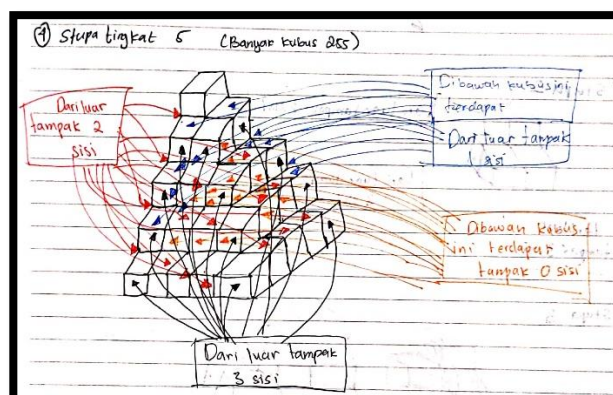 ④ Stupa tingkat 5 (Banyak kubus 255)
Dari luar
tampak 2
sisi
Dibawah kubus ini
terdapat
Dari luar tampak
1 sisi
Dibawah kubus
ini terdapat
tampak 0 sisi
Dari luar tampak
3 sisi